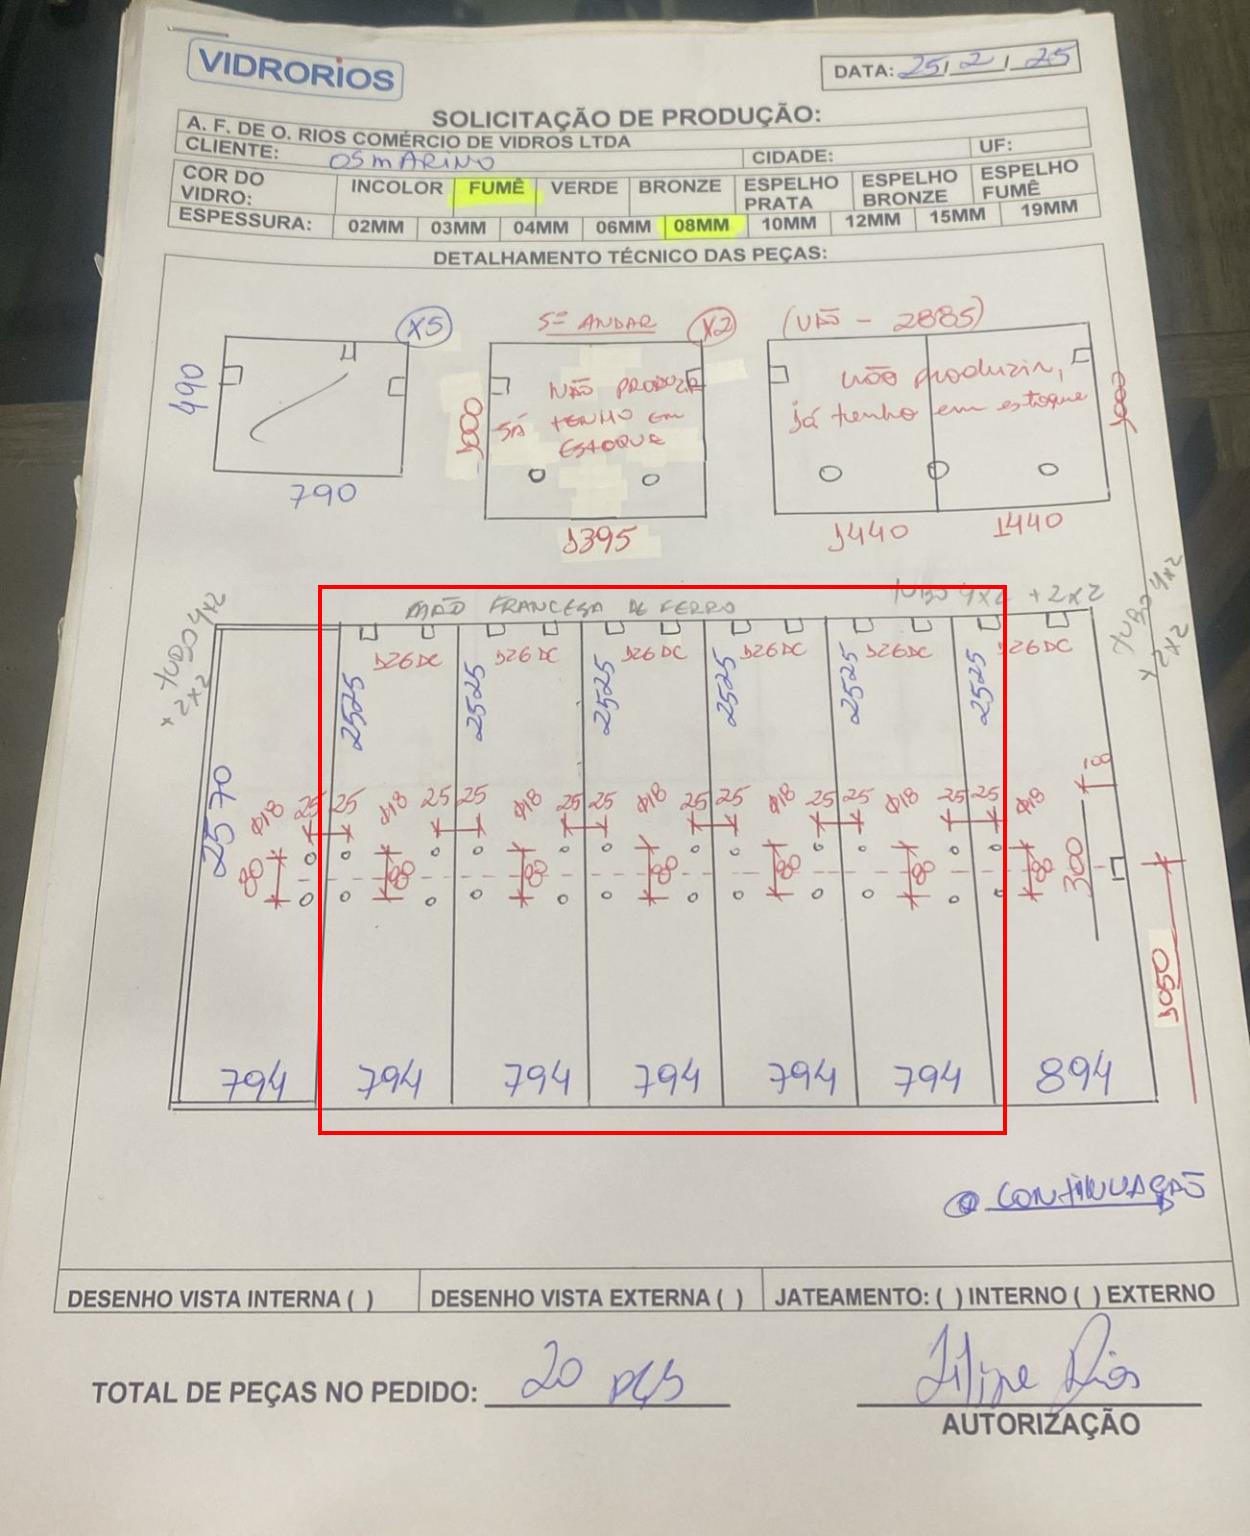 VIDRORIOS
DATA: 25/2/25
SOLICITAÇÃO DE PRODUÇÃO:
A. F. DE O. RIOS COMÉRCIO DE VIDROS LTDA
CLIENTE: OSMARINO CIDADE: UF:
COR DO VIDRO: INCOLOR FUMÊ VERDE BRONZE ESPELHO PRATA ESPELHO BRONZE ESPELHO FUMÊ
ESPESSURA: 02MM 03MM 04MM 06MM 08MM 10MM 12MM 15MM 19MM
DETALHAMENTO TÉCNICO DAS PEÇAS:
X5
490
790
5º ANDAR X2
NÃO PRODUZIR
JÁ TENHO EM
ESTOQUE
1000
1395
(VÃO - 2885)
não produzir,
já tenho em estoque
1000
1440 1440
MÃO FRANCESA DE FERRO TUBO 4x2 + 2x2
TUBO 4x2
+ 2x2
TUBO 4x2
+ 2x2
126DC 126DC 126DC 126DC 126DC 126DC
2525 2525 2525 2525 2525 2525
2570
100
Ø18 25 25 Ø18 25 25 Ø18 25 25 Ø18 25 25 Ø18 25 25 Ø18 25 25 Ø18
80 80 80 80 80 80 80 300
1050
794 794 794 794 794 794 894
CONTINUAÇÃO
DESENHO VISTA INTERNA ( ) DESENHO VISTA EXTERNA ( ) JATEAMENTO: ( ) INTERNO ( ) EXTERNO
TOTAL DE PEÇAS NO PEDIDO: 20 pçs
Filipe Rios
AUTORIZAÇÃO